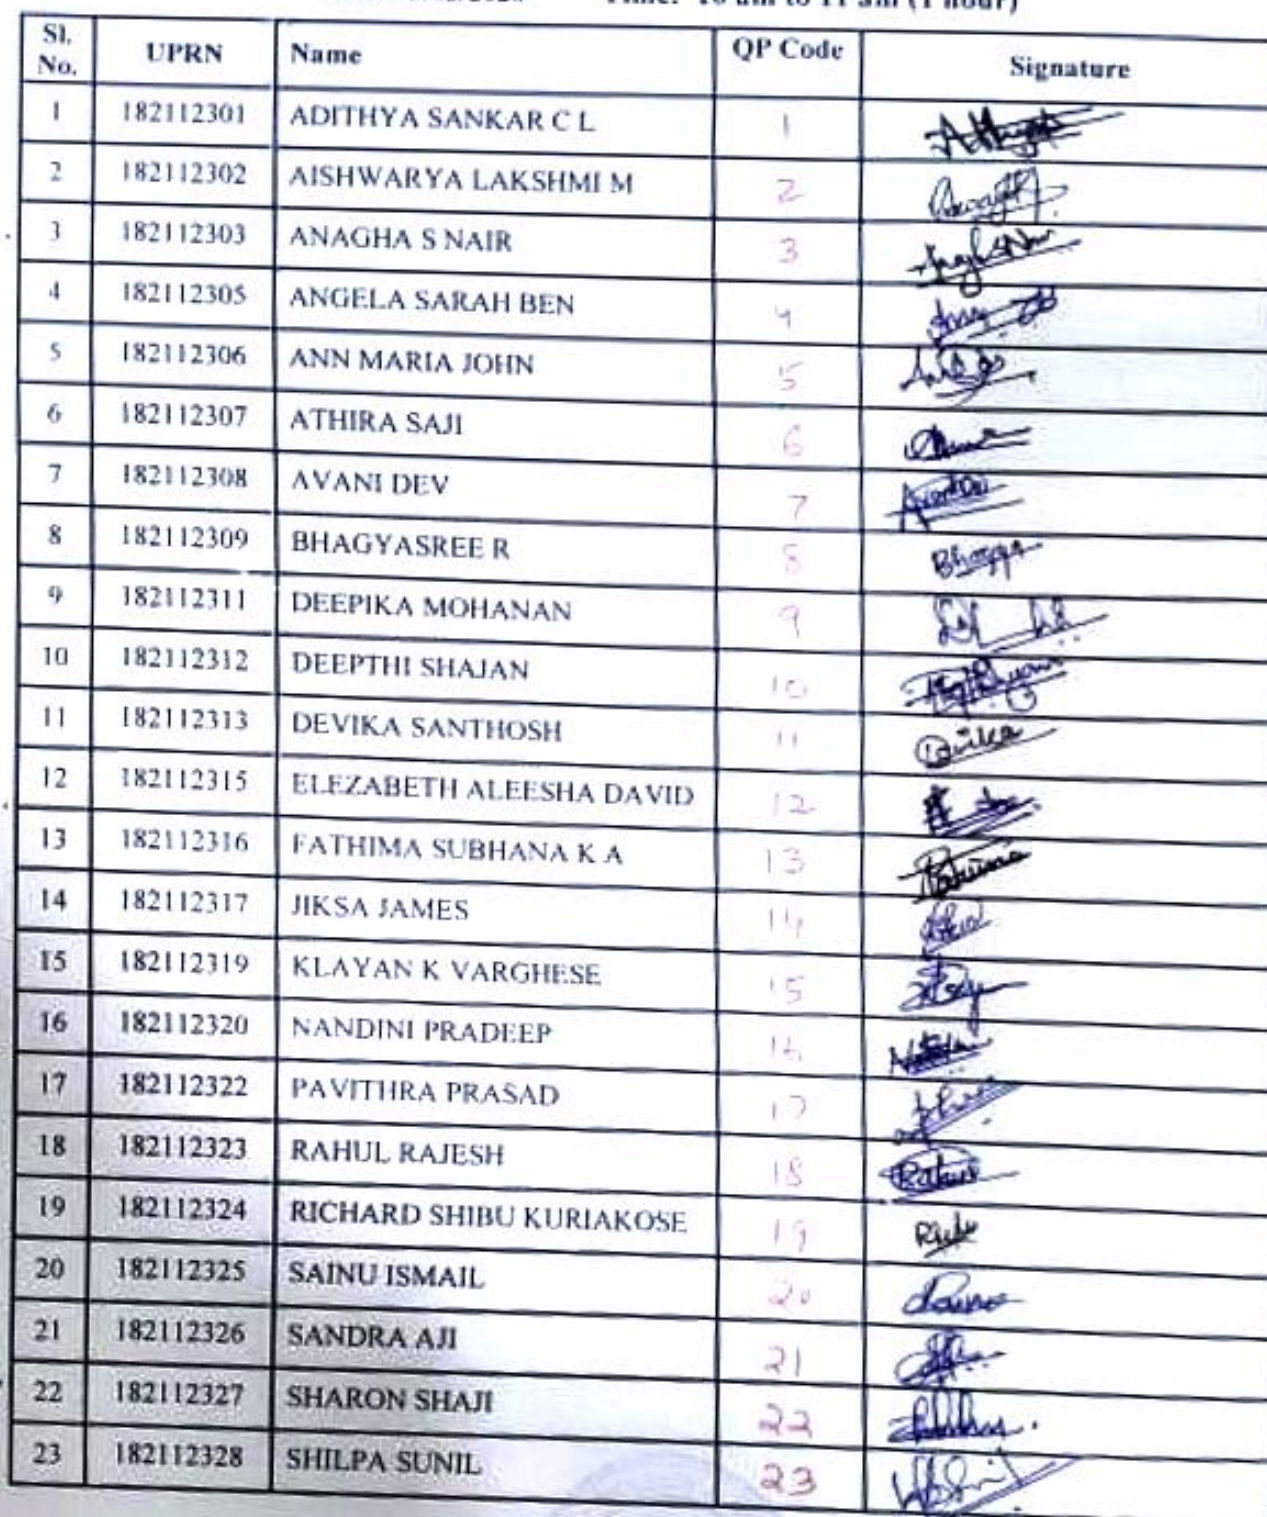 Time: 10 am to 11 am (1 hour)
Sl. No. UPRN Name QP Code Signature
1 182112301 ADITHYA SANKAR C L 1
2 182112302 AISHWARYA LAKSHMI M 2
3 182112303 ANAGHA S NAIR 3
4 182112305 ANGELA SARAH BEN 4
5 182112306 ANN MARIA JOHN 5
6 182112307 ATHIRA SAJI 6
7 182112308 AVANI DEV 7
8 182112309 BHAGYASREE R 8
9 182112311 DEEPIKA MOHANAN 9
10 182112312 DEEPTHI SHAJAN 10
11 182112313 DEVIKA SANTHOSH 11 Devika
12 182112315 ELEZABETH ALEESHA DAVID 12
13 182112316 FATHIMA SUBHANA K A 13
14 182112317 JIKSA JAMES 14
15 182112319 KLAYAN K VARGHESE 15
16 182112320 NANDINI PRADEEP 16
17 182112322 PAVITHRA PRASAD 17
18 182112323 RAHUL RAJESH 18
19 182112324 RICHARD SHIBU KURIAKOSE 19
20 182112325 SAINU ISMAIL 20
21 182112326 SANDRA AJI 21
22 182112327 SHARON SHAJI 22
23 182112328 SHILPA SUNIL 23